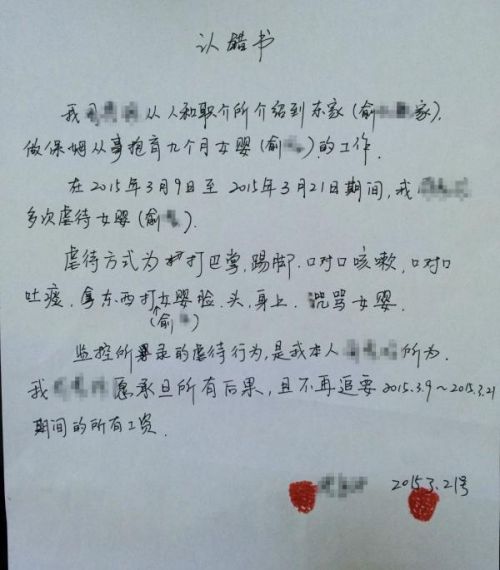 认错书
我司从人和职介所介绍到东家(俞家).
做保姆从事抱育九个月女婴(俞).的工作.
在2015年3月9日至2015年3月21日期间,我
多次虐待女婴(俞).
虐待方式为打巴掌,踢脚.口对口咳嗽,口对口
吐痰.拿东西打女婴脸.头,身上.咒骂女婴.
(俞)
监控所录的虐待行为,是我本人所为.
我愿承担所有后果,且不再追要2015.3.9~2015.3.21
期间的所有工资.
2015.3.21号